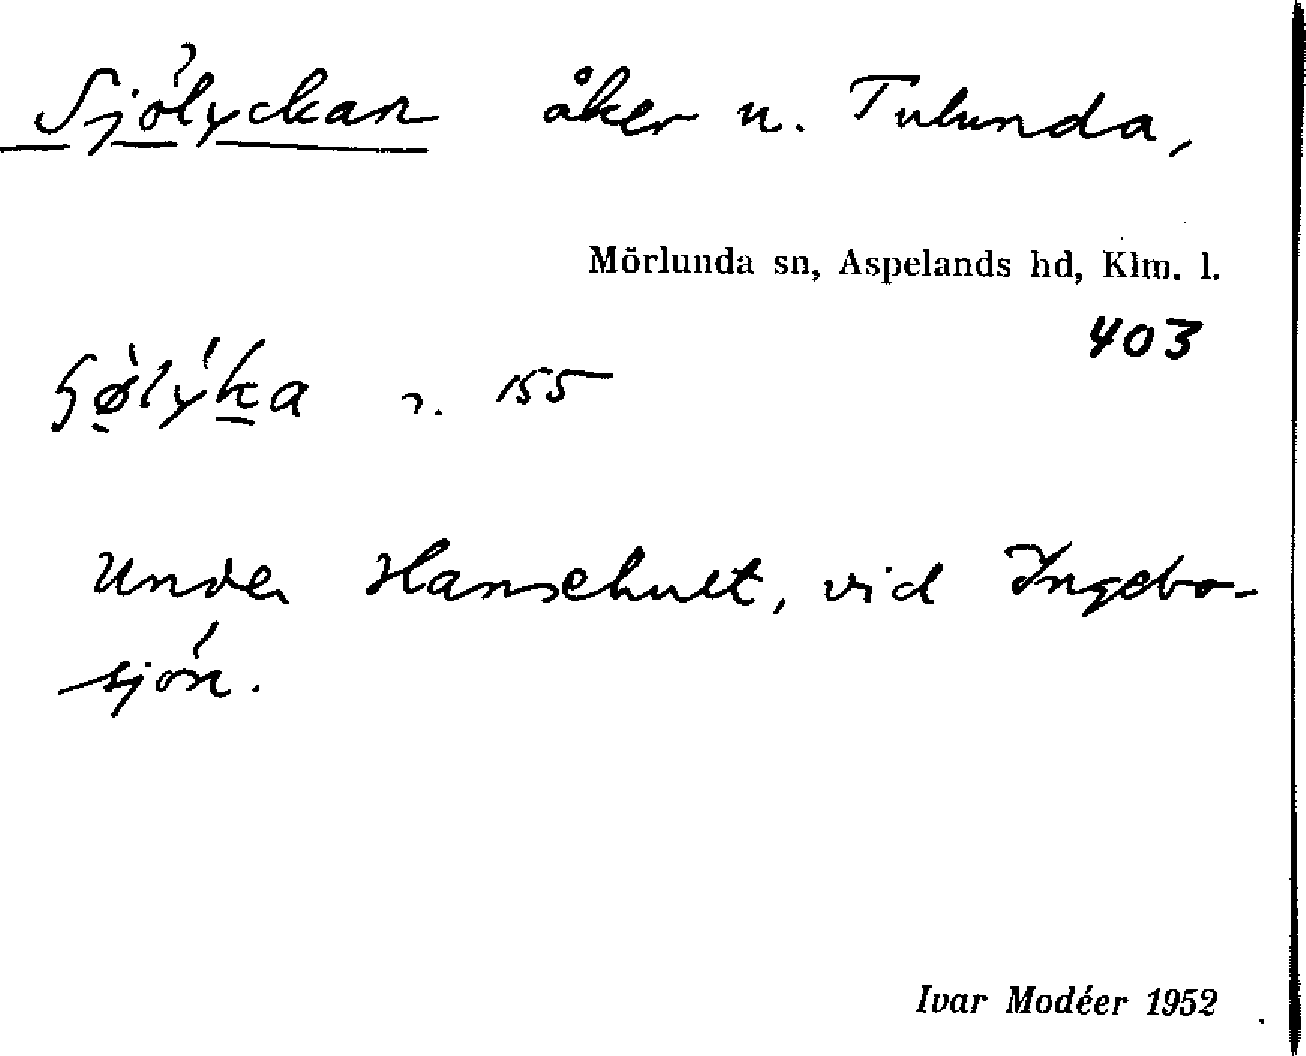 Sjölyckan åker u. Tulunda,
Mörlunda sn, Aspelands hd, Klm. l.
403
155
Under Hanschult, vid Ingebo-
sjön.
Ivar Modéer 1952